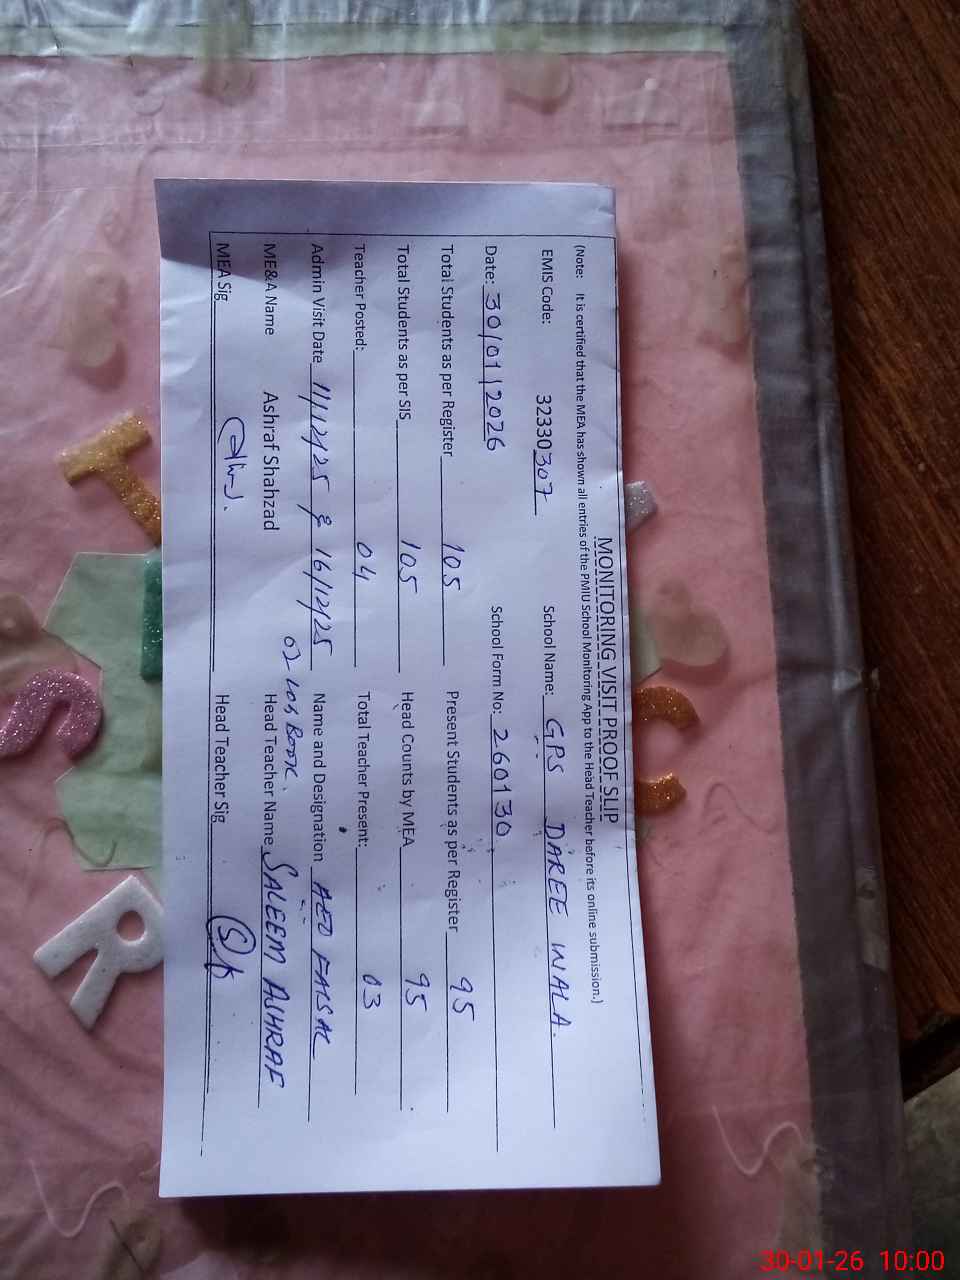 MONITORING VISIT PROOF SLIP
(Note: It is certified that the MEA has shown all entries of the PMIU School Monitoring App to the Head Teacher before its online submission.)
EMIS Code: 32330307 School Name: GPS DAREE WALA.
Date: 30/01/2026 School Form No: 260130
Total Students as per Register 105 Present Students as per Register 95
Total Students as per SIS 105 Head Counts by MEA 95
Teacher Posted: 04 Total Teacher Present: 03
Admin Visit Date 11/12/25 & 16/12/25 Name and Designation AEO FAISAL
02 LOG BOOK.
ME&A Name Ashraf Shahzad Head Teacher Name SALEEM ASHRAF
MEA Sig Head Teacher Sig
T
S
R
30-01-26 10:00